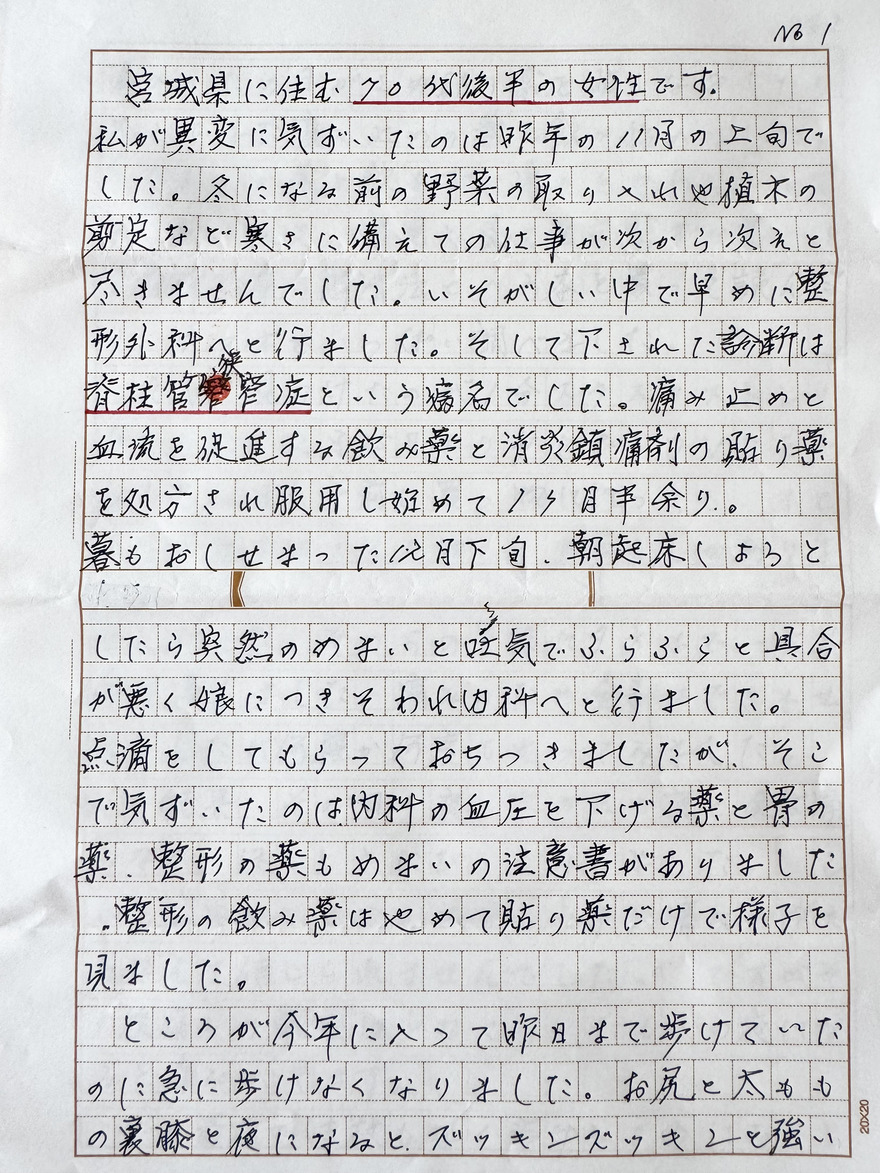 No 1
宮城県に住む70代後半の女性です。
私が異変に気ずいたのは昨年の11月の上旬で
した。冬になる前の野菜の取り入れや植木の
剪定など寒さに備えての仕事が次から次えと
尽きませんでした。いそがしい中で早めに整
形外科へと行ました。そして下された診断は
脊柱管狭窄症という病名でした。痛み止めと
血流を促進する飲み薬と消炎鎮痛剤の貼り薬
を処方され服用し始めて1ヶ月半余り.。
暮もおしせまった12月下旬、朝起床しようと
したら突然のめまいと吐気でふらふらと具合
が悪く娘につきそわれ内科へと行ました。
点滴をしてもらっておちつきましたが、そこ
で気ずいたのは内科の血圧を下げる薬と胃の
薬、整形の薬もめまいの注意書がありました
。整形の飲み薬はやめて貼り薬だけで様子を
見ました。
ところが今年に入って昨日まで歩けていた
のに急に歩けなくなりました。お尻と太もも
の裏膝と夜になると、ズッキンズッキンと強い
20×20